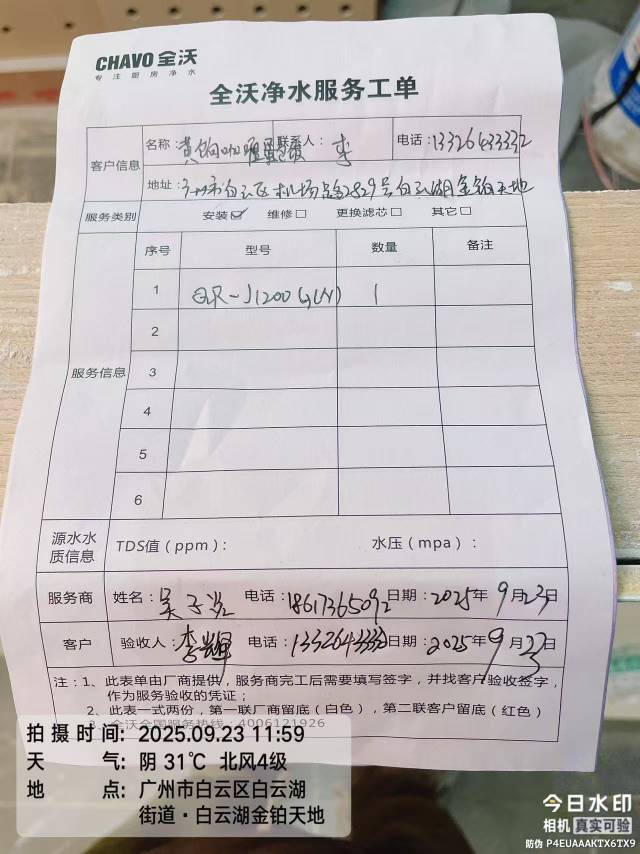 CHAVO 全沃
专注厨房净水
全沃净水服务工单
客户信息
名称： 联系人：李 电话：13326433332
地址：广州市白云区机场路2809号白云湖金铂天地
服务类别 安装☑ 维修□ 更换滤芯□ 其它□
服务信息
序号 型号 数量 备注
1 1
2
3
4
5
6
源水水质信息 TDS值（ppm）： 水压（mpa）：
服务商 姓名：吴子 电话：18617365092 日期：2025年9月23日
客户 验收人：李 电话：13326433332 日期：2025年9月23日
注：1、此表单由厂商提供，服务商完工后需要填写签字，并找客户验收签字，
作为服务验收的凭证；
2、此表一式两份，第一联厂商留底（白色），第二联客户留底（红色）
3、全沃全国服务热线：4006121926
拍摄时间：2025.09.23 11:59
天气：阴 31℃ 北风4级
地点：广州市白云区白云湖
街道·白云湖金铂天地
今日水印
相机 真实可验
防伪 P4EUAAAKTX6TX9